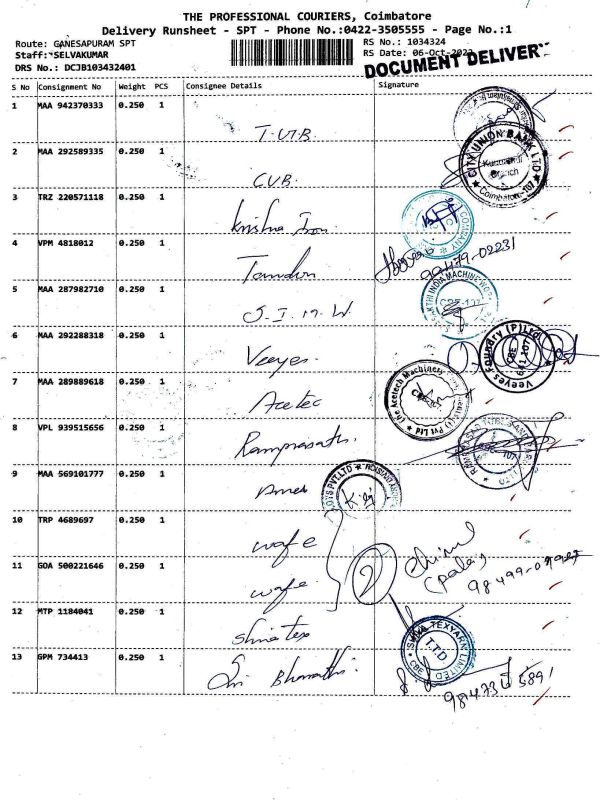 THE PROFESSIONAL COURIERS, Coimbatore
Delivery Runsheet - SPT - Phone No.:0422-3505555 - Page No.:1
Route: GANESAPURAM SPT
RS No.: 1034324
Staff: SELVAKUMAR
RS Date: 06-Oct-2023
DRS No.: DCJB103432401
DOCUMENT DELIVERY
S No Consignment No Weight PCS Consignee Details Signature
1 MAA 942370333 0.250 1
2 MAA 292589335 0.250 1 C.U.B.
CITY UNION BANK LTD
Branch
Coimbatore-107
3 TRZ 220571118 0.250 1 Krishna Iron
COMPANY
4 VPM 4818012 0.250 1 Tamdun
99479-02231
5 MAA 287982710 0.250 1 S.I.M.W
SAKTHI INDIA MACHINE WORKS
CBE-107
6 MAA 292288318 0.250 1 Veeyes.
Veeyes Foundry (P) Ltd
CBE
641 107
7 MAA 289889618 0.250 1 Acetec
The Acetech Machinery (I) Pvt Ltd
8 VPL 939515656 0.250 1 Ramprasath.
9 MAA 569101777 0.250 1
PVT.LTD
10 TRP 4689697 0.250 1 wafe
11 GOA 500221646 0.250 1 wafe
2
(pala)
12 MTP 1184041 0.250 1 Shivatex
SHIVA TEXYARN LIMITED
T.T.D
CBE
13 GPM 734413 0.250 1 Sri Bharathi